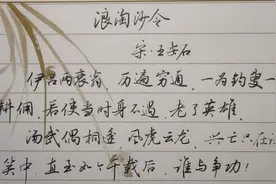 浪淘沙令
宋·王安石
伊吕两衰翁 历遍穷通 一为钓叟一
耕佣 若使当时身不遇 老了英雄
汤武偶相逢 风虎云龙 兴亡只在
笑中 直至如今千载后 谁与争功!